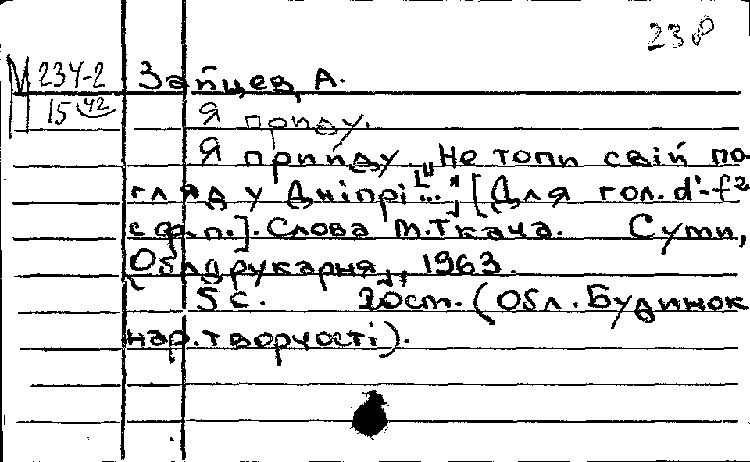 238
М 234-2 Зайцев, А.
15 42 Я прийду.
Я прийду. „Не топи свій по-
гляд у Дніпрі..." [Для гол. d¹-f²
с ф.п.]. Слова М.Ткача. Суми,
Облдрукарня, 1963.
5 с. 20см. (Обл. Будинок
нар. творчості).